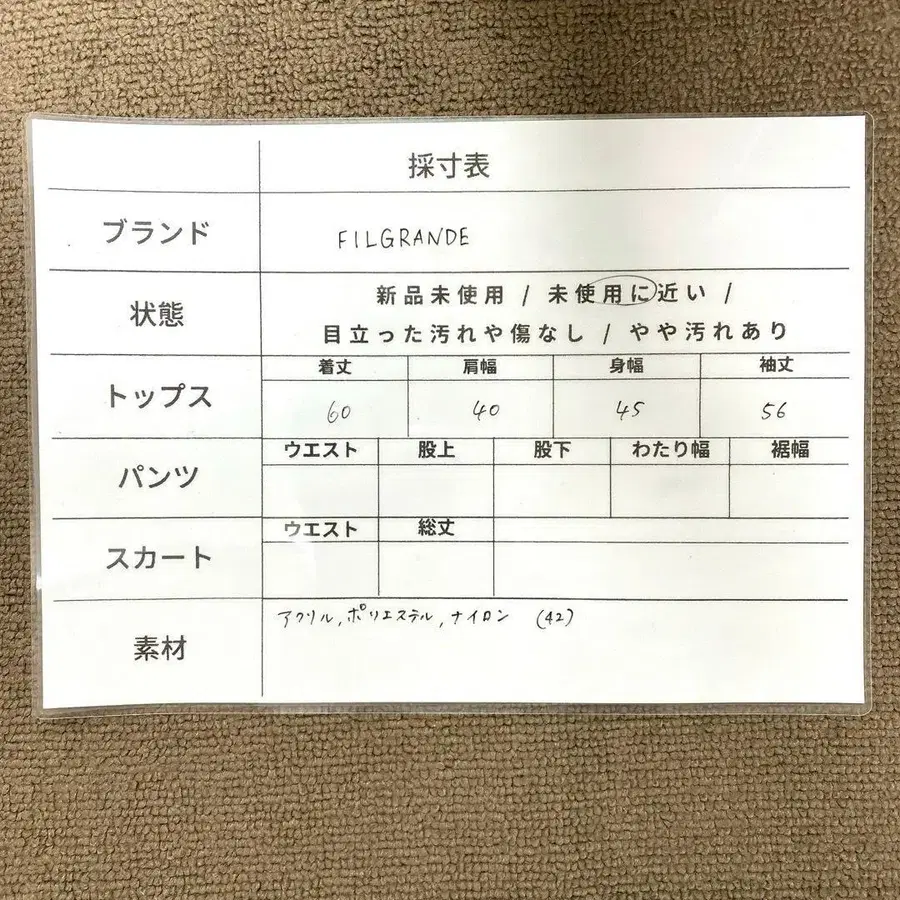 採寸表
ブランド FILGRANDE
状態 新品未使用 / 未使用に近い /
目立った汚れや傷なし / やや汚れあり
トップス 着丈 肩幅 身幅 袖丈
60 40 45 56
パンツ ウエスト 股上 股下 わたり幅 裾幅
スカート ウエスト 総丈
素材 アクリル,ポリエステル,ナイロン (42)